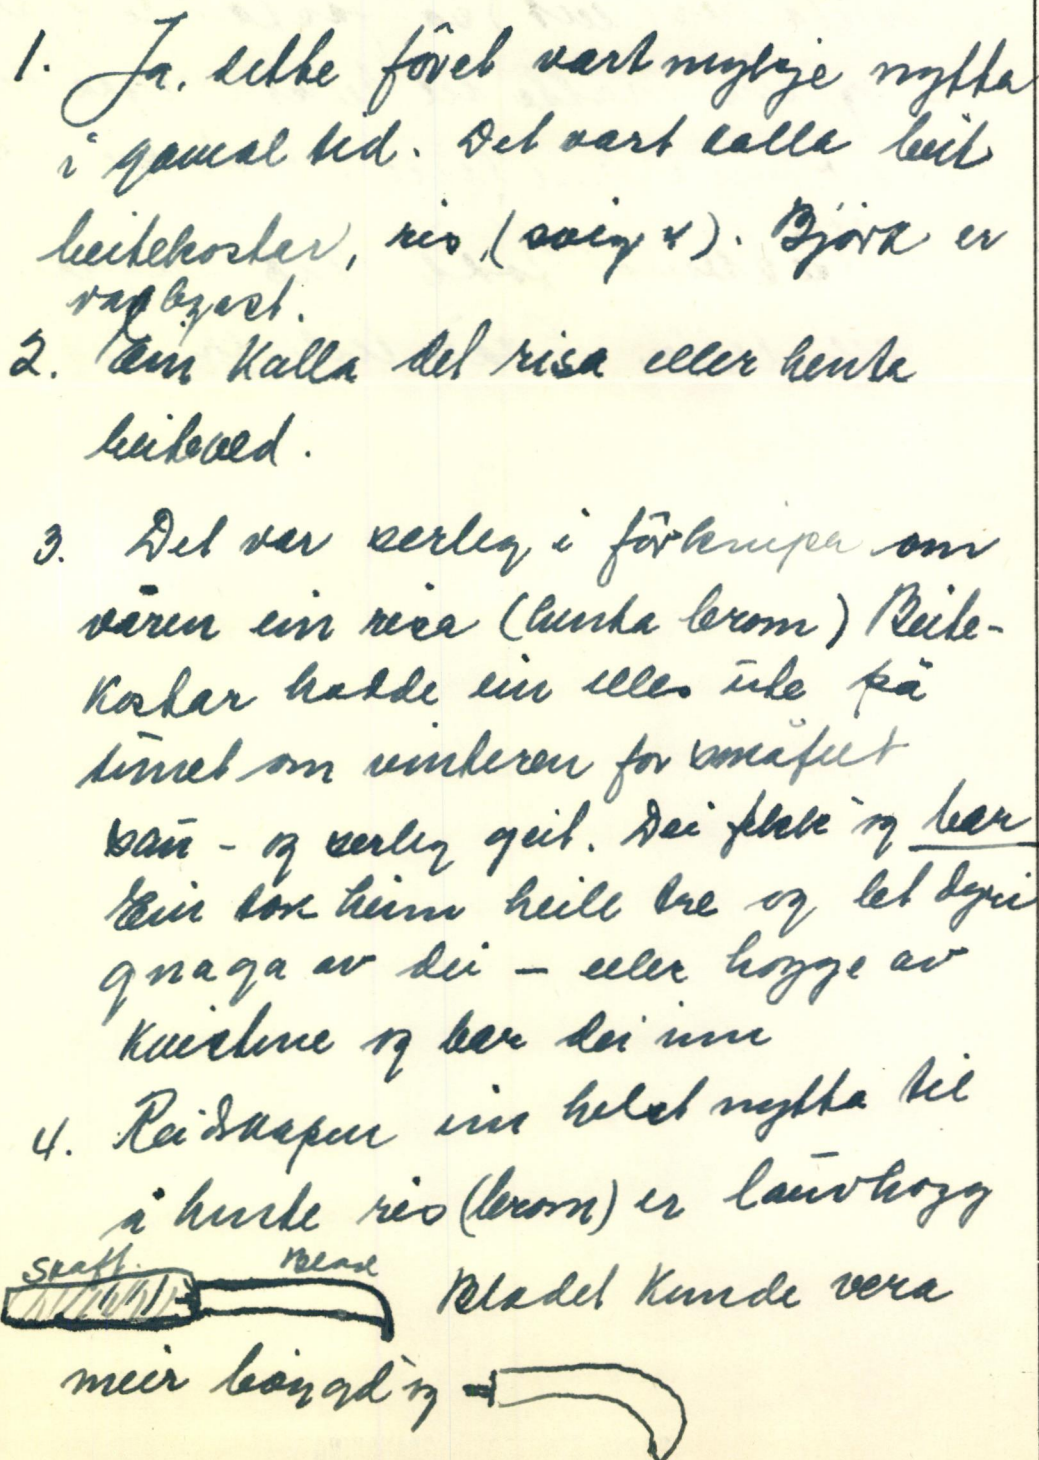 1. Ja, dette fôret vart mykje nytta
i gamal tid. Det vart kalla beit
beitekostar, ris, (svig *). Björk er
vanlegast.
2. Ein kalla det risa eller henta
beiteved.
3. Det var serleg i fôrknipa om
våren ein risa (henta brom) Beite-
kostar hadde ein elles ute på
tunet om vinteren for småfeet
sau - og serleg geit. Dei fekk og bar
Ein tok heim heile tre og let dyri
gnaga av dei - eller hogge av
kvistene og bar dei inn
4. Reidskapen ein helst nytta til
å hente ris (brom) er lauvhogg
Skaft. Blad
Bladet kunde vera
meir bøygd og